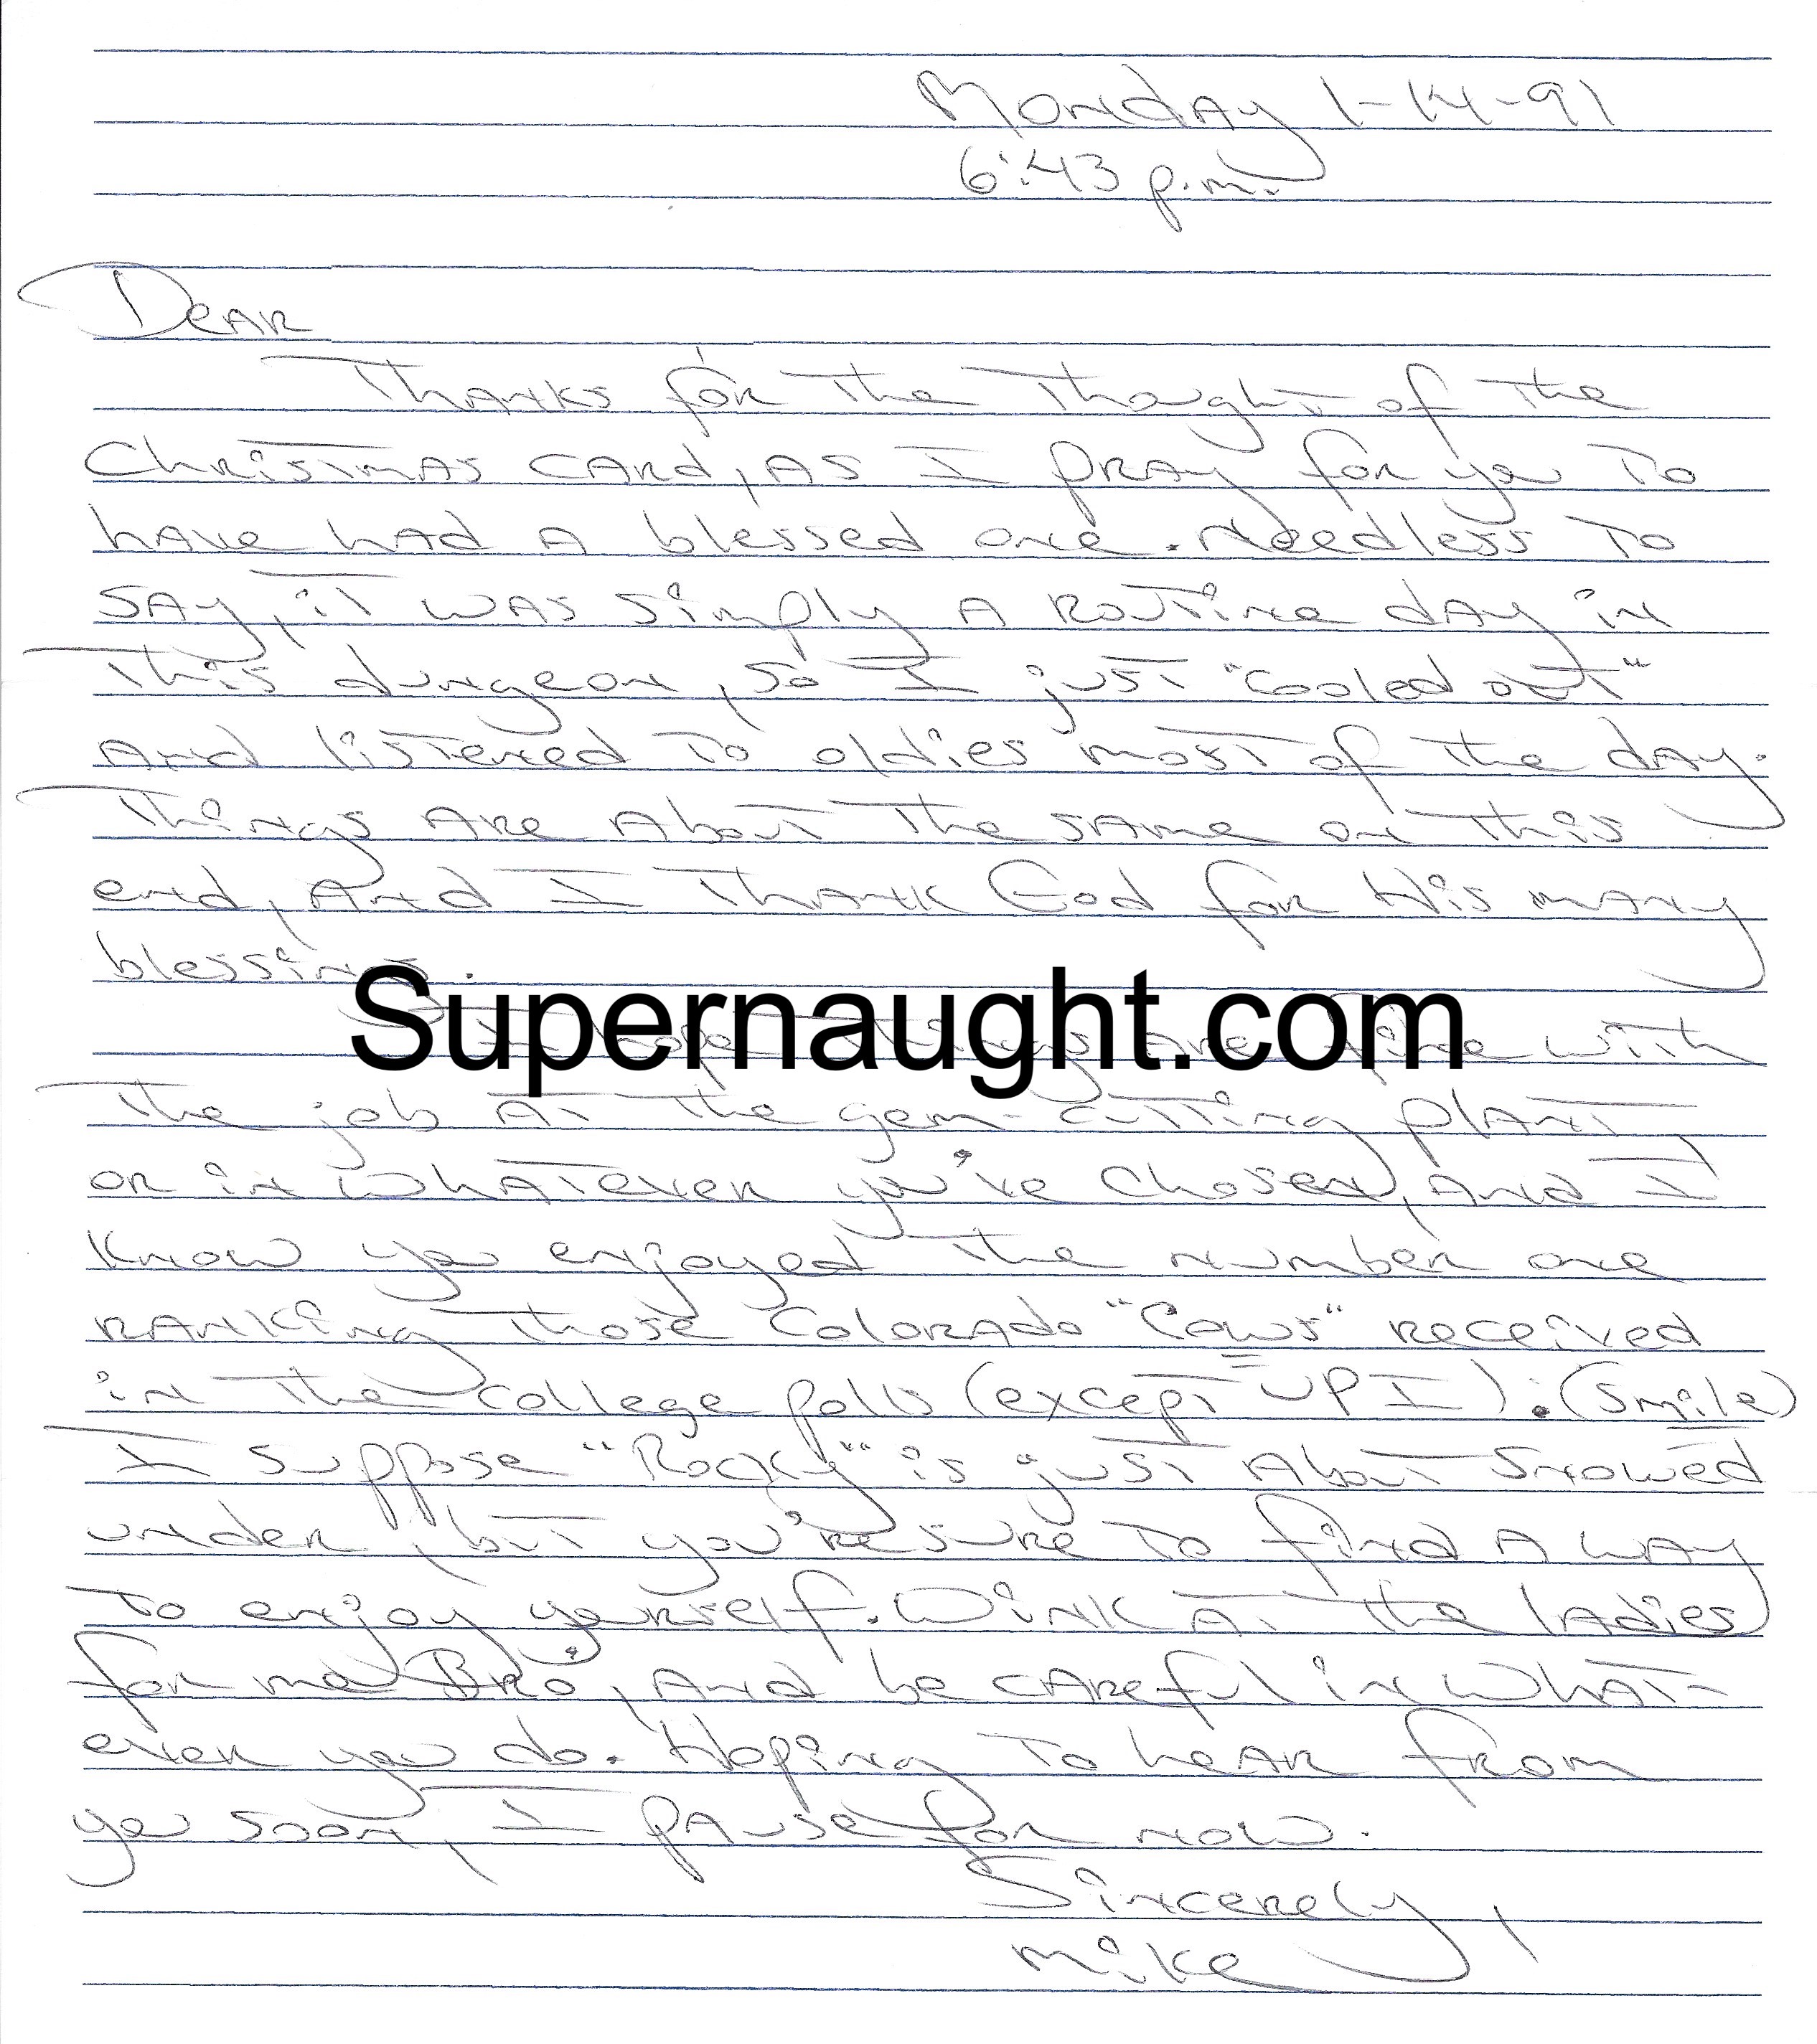 Monday 1-14-91
6:43 p.m.
Dear
Thanks for the thought of the
Christmas card, as I pray for you to
have had a blessed one. Needless to
say, it was simply a routine day in
this dungeon, so I just "cooled out"
and listened to oldies most of the day.
Things are about the same on this
end, and I thank God for His many
blessings.
Supernaught.com
I hope things are fine with
the job at the gem-cutting plant
or in whatever you've chosen, and I
know you enjoyed the number one
ranking those Colorado "Cows" received
in the college polls (except UPI). (Smile)
I suppose "Rocky" is just about snowed
under, but you're sure to find a way
to enjoy yourself. Wink at the ladies
for me Bro, and be careful in what-
ever you do. Hoping to hear from
you soon, I pause for now.
Sincerely,
Mike